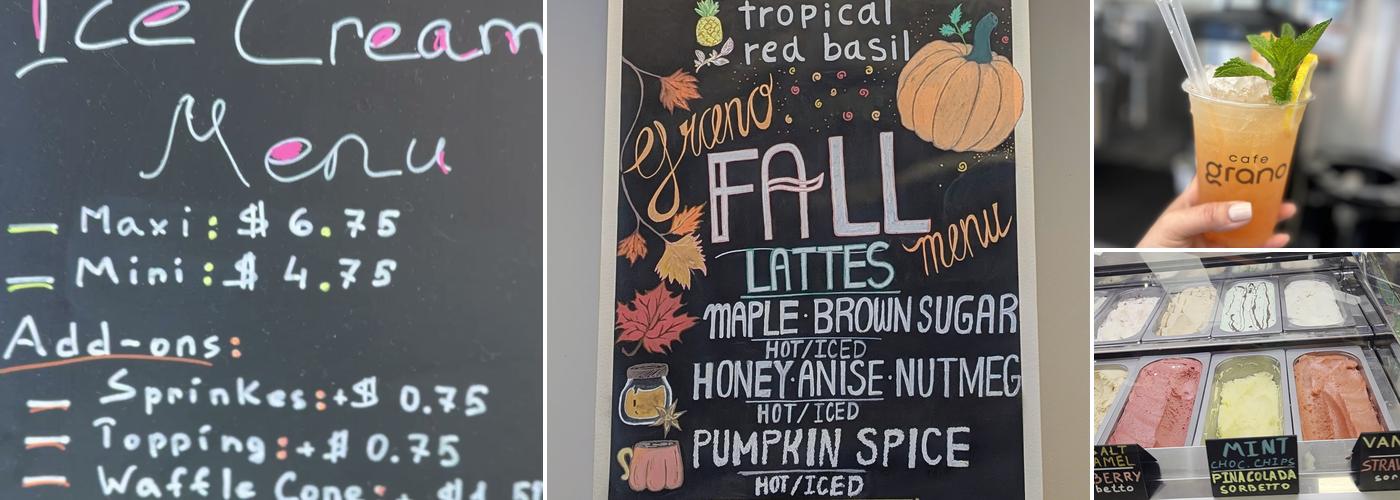 Ice Cream
Menu
Maxi: $ 6.75
Mini: $ 4.75
Add-ons:
Sprinkes: +$ 0.75
Topping: +$ 0.75
Waffle Cone:
tropical
red basil
grano
FALL
menu
LATTES
MAPLE·BROWN SUGAR
HOT/ICED
HONEY·ANISE·NUTMEG
HOT/ICED
PUMPKIN SPICE
HOT/ICED
cafe
grano
MINT
CHOC. CHIPS
PINACOLADA
SORBETTO